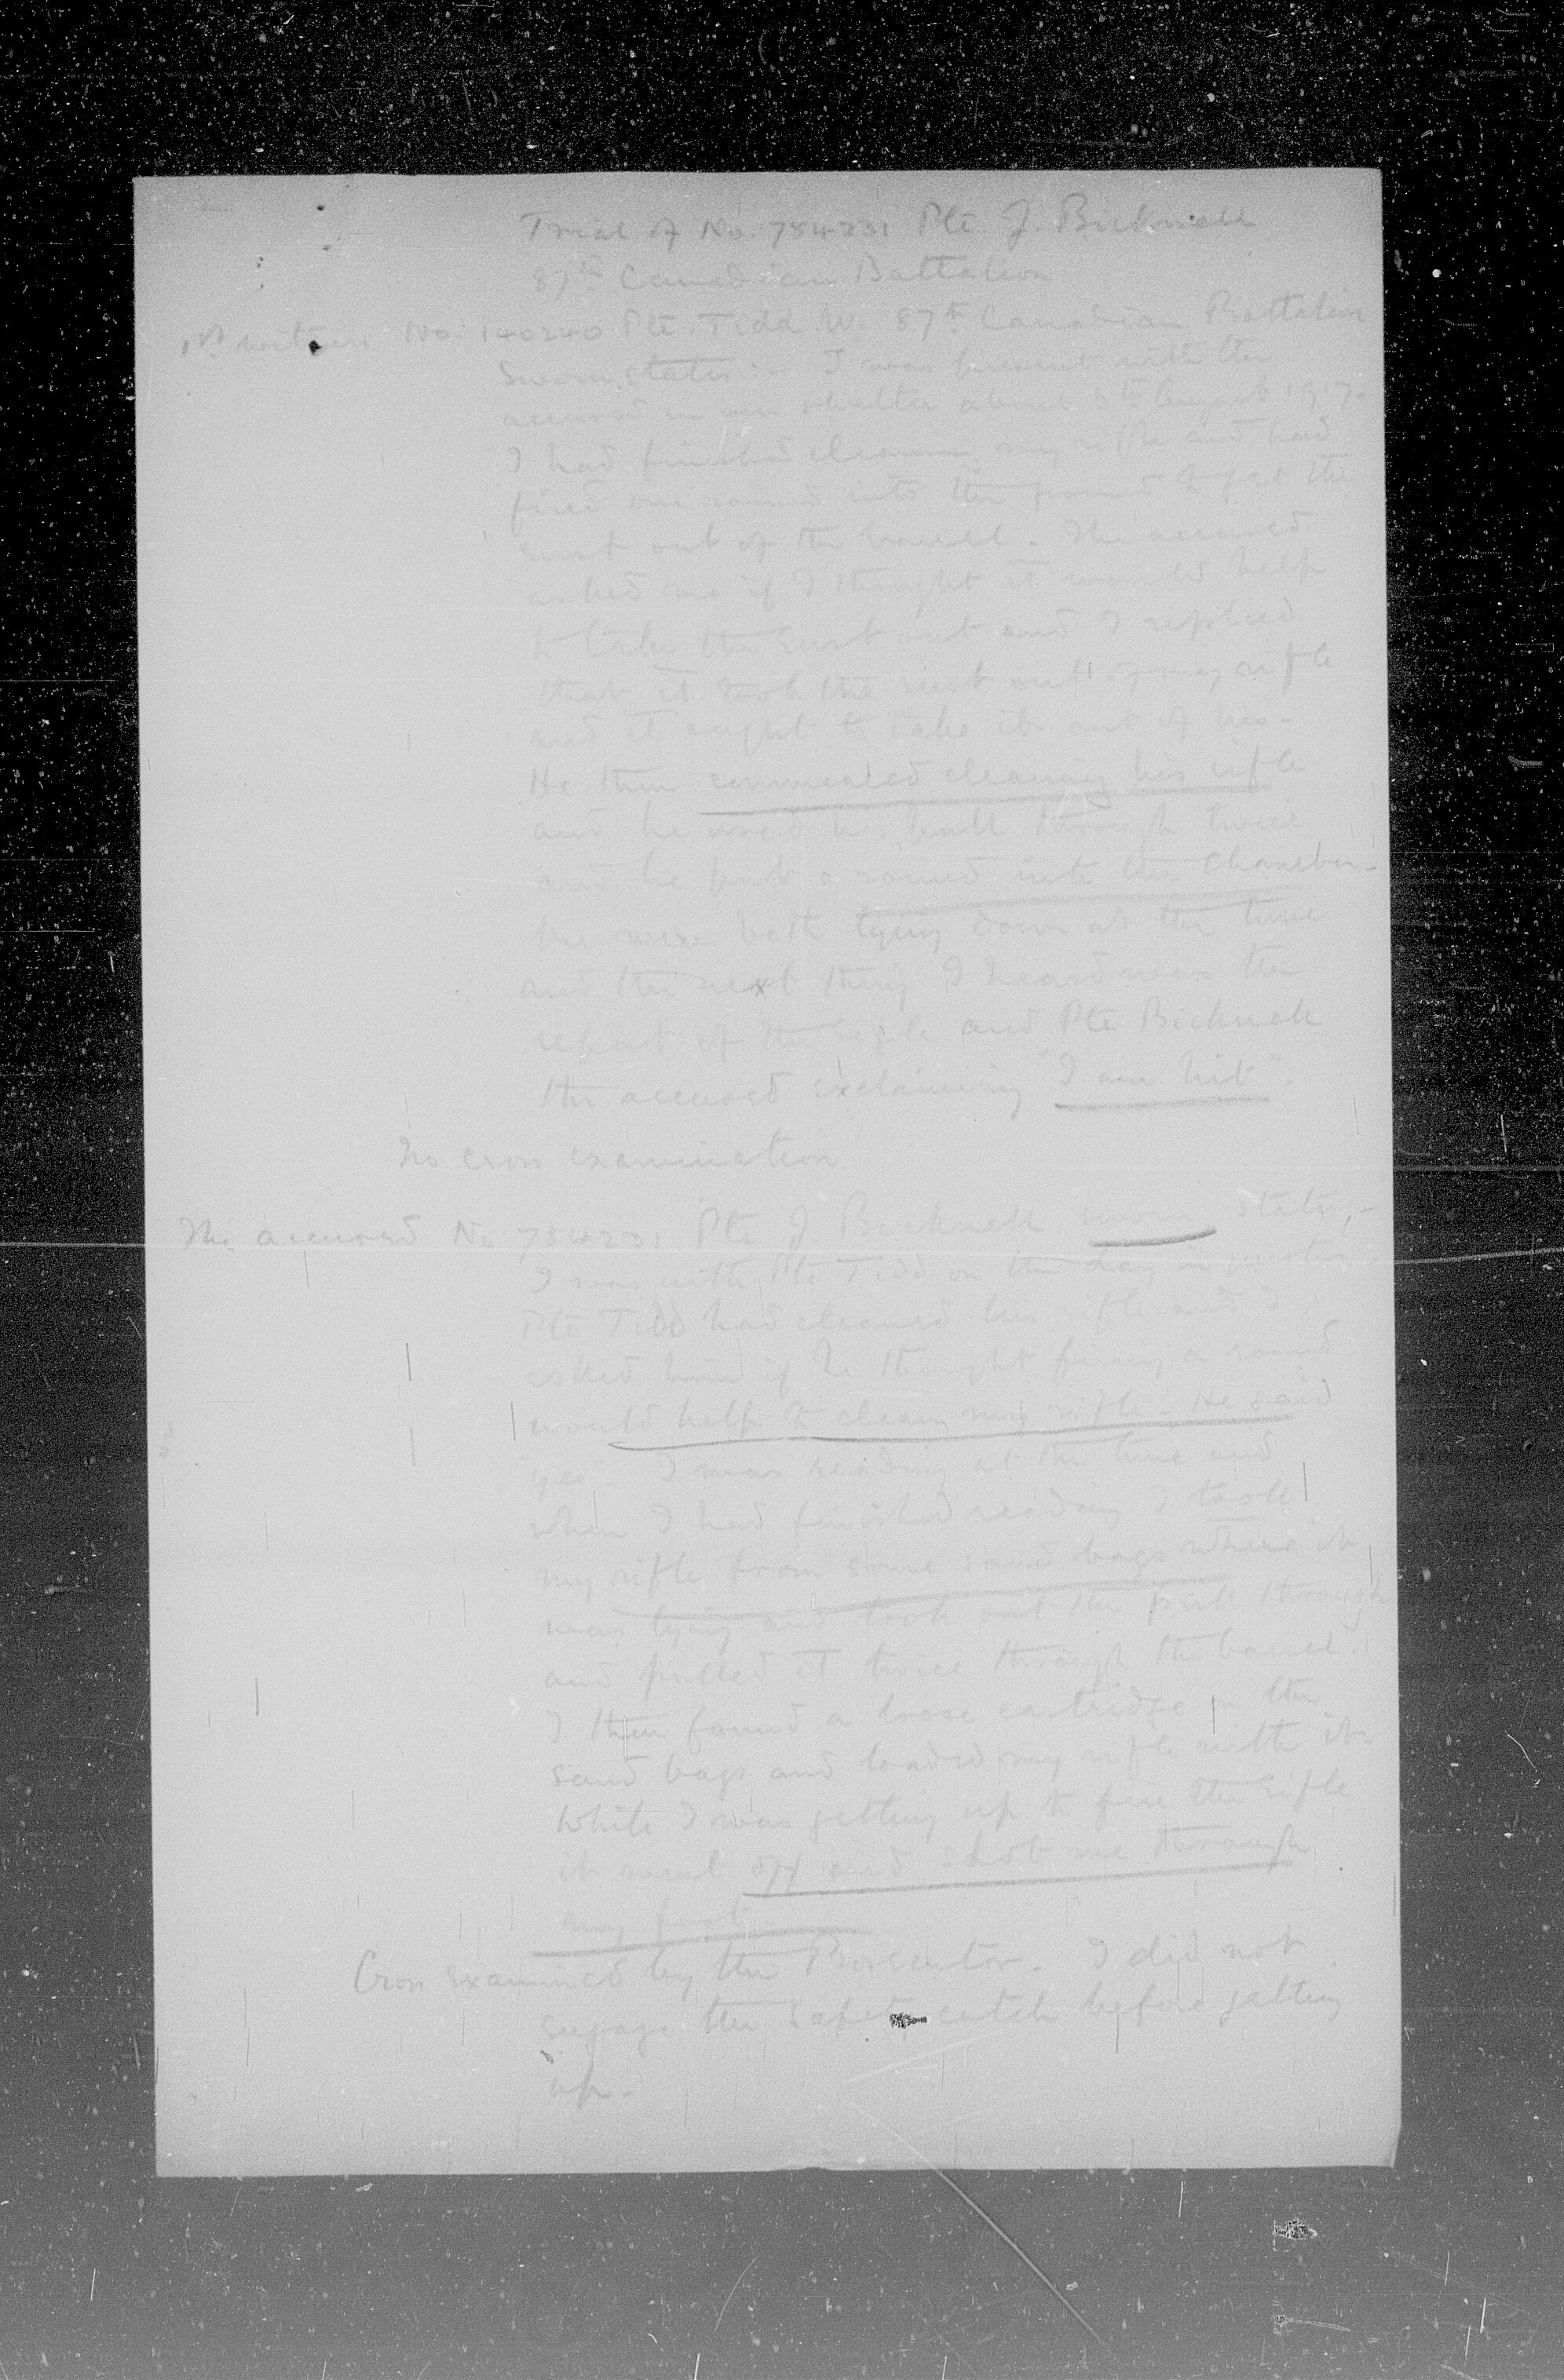 Trial of No. 784231 Pte. J. Bicknell
87th Canadian Battalion
1st witness No. 140240 Pte. Tidd W. 87th Canadian Battalion
Sworn states:- I was present with the
accused in our shelter about 6th August 1917.
I had finished cleaning my rifle and had
fired one round into the ground to get the
rust out of the barrel. The accused
asked me if I thought it would help
to take the rust out and I replied
that it took the rust out of my rifle
and it ought to take it out of his.
He then commenced cleaning his rifle
and he used his pull through twice
and he put a round into the chamber.
We were both lying down at the time
and the next thing I heard was the
report of the rifle and Pte Bicknell
the accused exclaiming "I am hit".
No cross examination
The accused No 784231 Pte J Bicknell sworn states,-
I was with Pte Tidd on the day in question.
Pte Tidd had cleaned his rifle and I
asked him if he thought firing a round
would help to clean my rifle. He said
yes. I was reading at the time and
when I had finished reading I took
my rifle from some sand bags where it
was lying and took out the pull through
and pulled it twice through the barrel.
I then found a loose cartridge in the
sand bags and loaded my rifle with it.
While I was getting up to fire the rifle
it went off and shot me through
my foot.
Cross examined by the Prosecutor. I did not
engage the safety catch before getting
up.